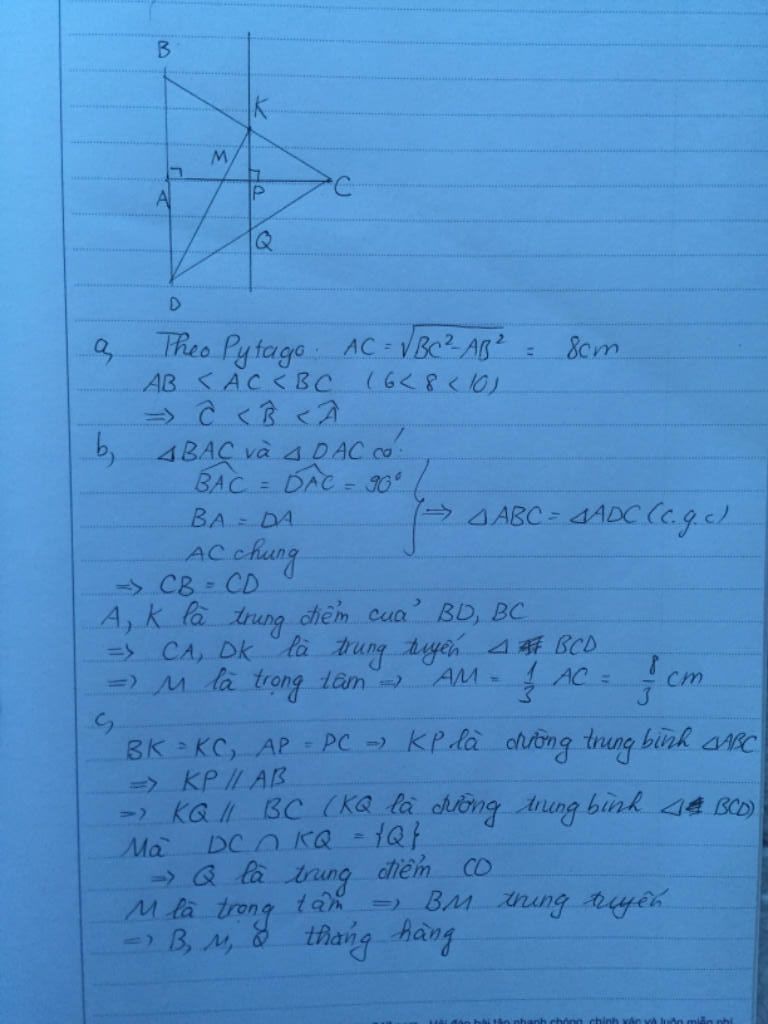 B
K
M
A
P
C
Q
D
a, Theo Pytago. AC = √BC² - AB² = 8cm
AB < AC < BC (6 < 8 < 10)
=> Ĉ < B̂ < Â
b, △BAC và △DAC có:
BAC = DAC = 90°
BA = DA => △ABC = △ADC (c.g.c)
AC chung
=> CB = CD
A, K là trung điểm của BD, BC
=> CA, DK là trung tuyến △ BCD
=> M là trọng tâm => AM = 1/3 AC = 8/3 cm
c,
BK = KC, AP = PC => KP là đường trung bình △ABC
=> KP // AB
=> KQ // BC (KQ là đường trung bình △ BCD)
Mà DC ∩ KQ = {Q}
=> Q là trung điểm CD
M là trọng tâm => BM trung tuyến
=> B, M, Q thẳng hàng
Hỏi đáp bài tập nhanh chóng, chính xác và luôn miễn phí